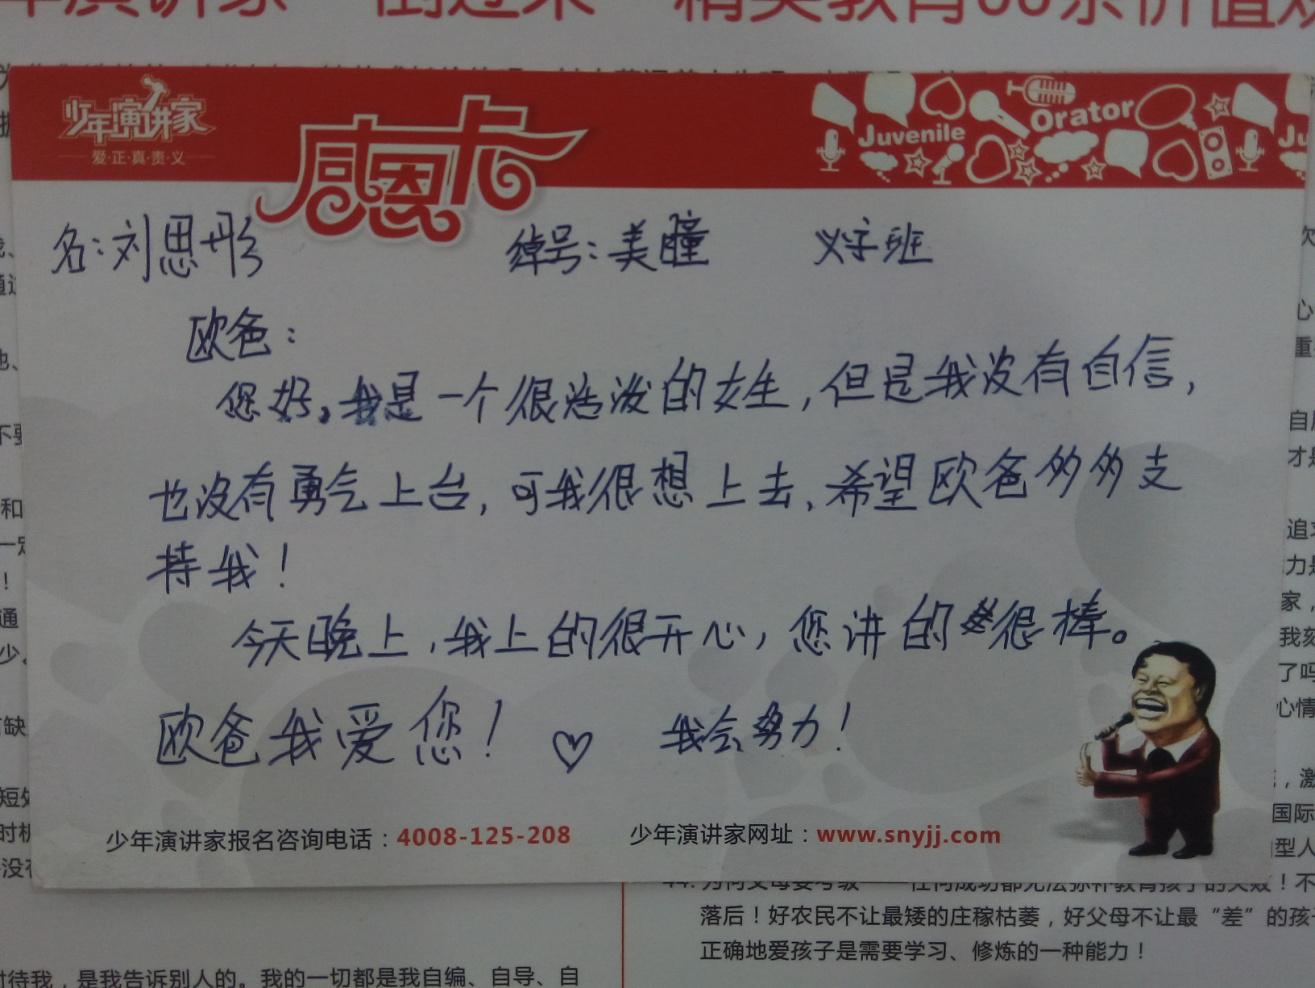 年演讲家 “倒过来” 精英教育60条价值观
少年演讲家
爱·正·真·责·义
感恩卡
Juvenile
Orator
Ju
名:刘思彤 绰号:美瞳 义字班
欧爸:
您好。我是一个很活泼的女生,但是我没有自信,
也没有勇气上台,可我很想上去,希望欧爸多多支
持我!
今天晚上,我上的很开心,您讲的很棒。
欧爸我爱您! ♡ 我会努力!
少年演讲家报名咨询电话:4008-125-208
少年演讲家网址:www.snyjj.com
落后!好农民不让最矮的庄稼枯萎,好父母不让最“差”的孩子
正确地爱孩子是需要学习、修炼的一种能力!
对待我,是我告诉别人的。我的一切都是我自编、自导、自